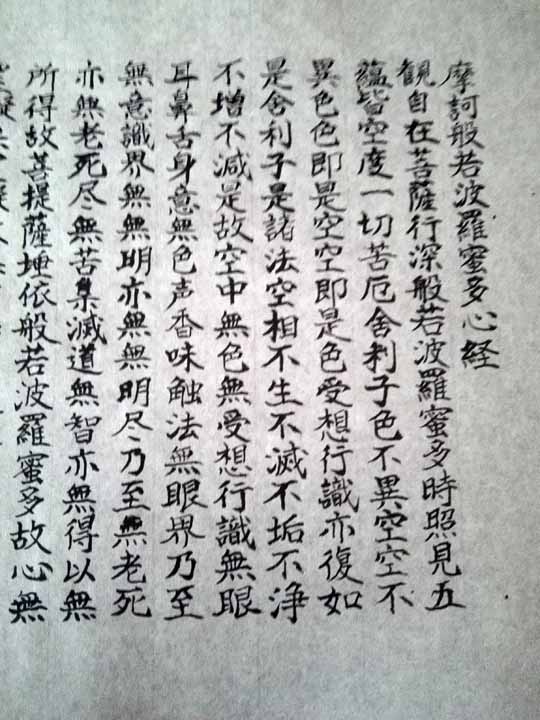 摩訶般若波羅蜜多心経
観自在菩薩行深般若波羅蜜多時照見五
蘊皆空度一切苦厄舍利子色不異空空不
異色色即是空空即是色受想行識亦復如
是舍利子是諸法空相不生不滅不垢不浄
不増不減是故空中無色無受想行識無眼
耳鼻舌身意無色声香味触法無眼界乃至
無意識界無無明亦無無明尽乃至無老死
亦無老死尽無苦集滅道無智亦無得以無
所得故菩提薩埵依般若波羅蜜多故心無